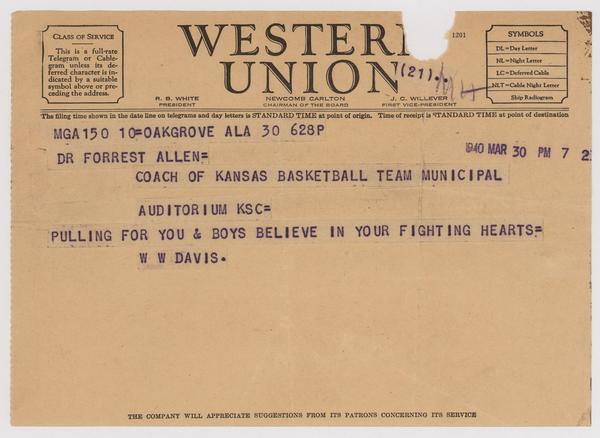 CLASS OF SERVICE
This is a full-rate
Telegram or Cable-
gram unless its de-
ferred character is in-
dicated by a suitable
symbol above or pre-
ceding the address.
WESTERN
UNION
1201
(21)..
R. B. WHITE
PRESIDENT
NEWCOMB CARLTON
CHAIRMAN OF THE BOARD
J. C. WILLEVER
FIRST VICE-PRESIDENT
SYMBOLS
DL=Day Letter
NL=Night Letter
LC=Deferred Cable
NLT=Cable Night Letter
Ship Radiogram
The filing time shown in the date line on telegrams and day letters is STANDARD TIME at point of origin. Time of receipt is STANDARD TIME at point of destination
MGA150 10=OAKGROVE ALA 30 628P
1940 MAR 30 PM 7
DR FORREST ALLEN=
COACH OF KANSAS BASKETBALL TEAM MUNICIPAL
AUDITORIUM KSC=
PULLING FOR YOU & BOYS BELIEVE IN YOUR FIGHTING HEARTS=
W W DAVIS.
THE COMPANY WILL APPRECIATE SUGGESTIONS FROM ITS PATRONS CONCERNING ITS SERVICE